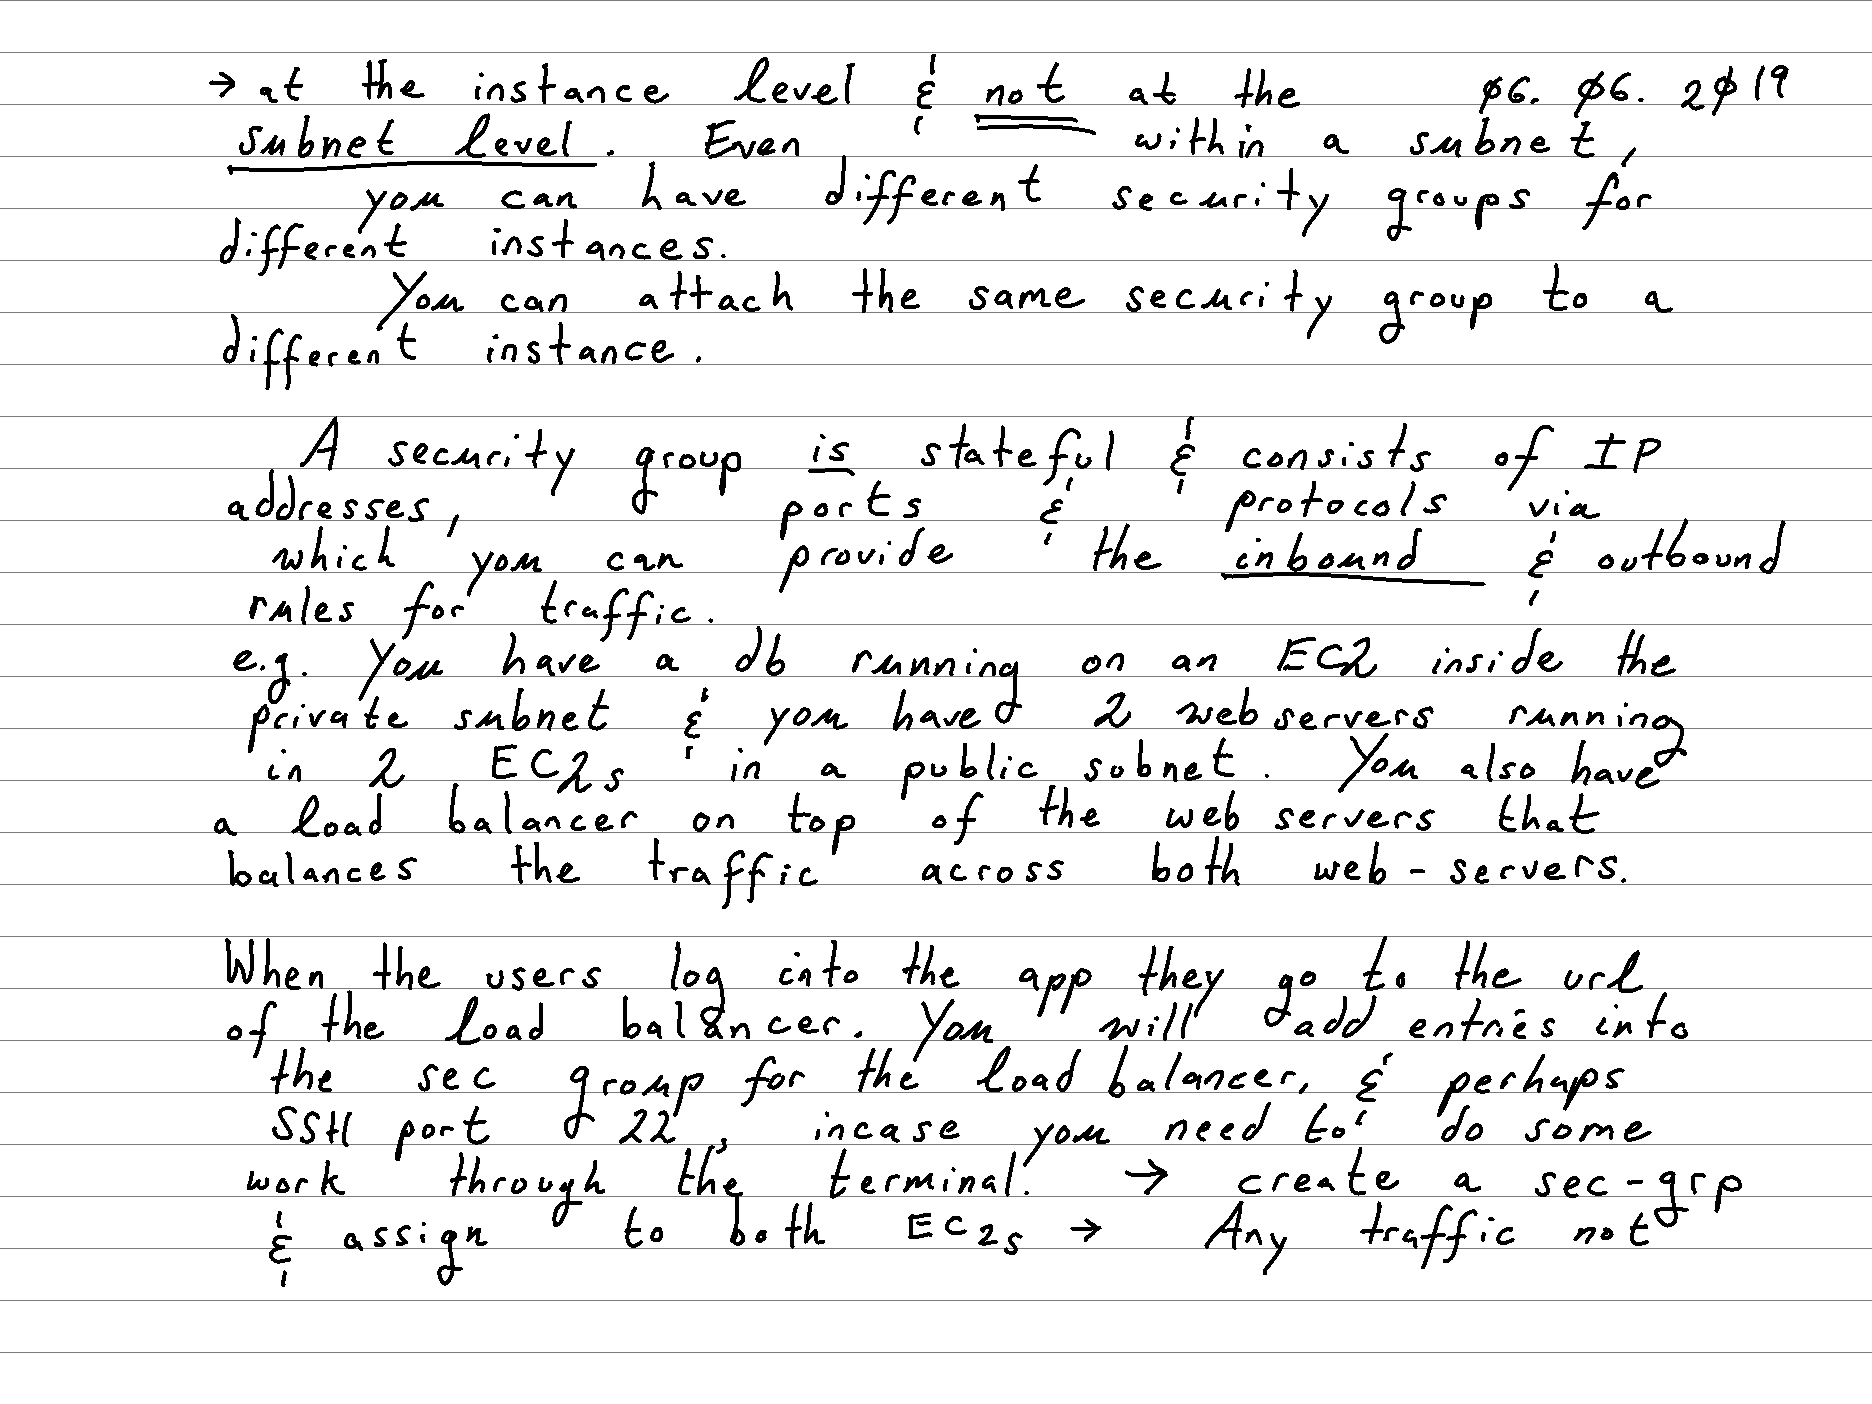 → at the instance level & not at the 06. 06. 2019
subnet level. Even within a subnet,
you can have different security groups for
different instances.
You can attach the same security group to a
different instance.
A security group is stateful & consists of IP
addresses, ports & protocols via
which you can provide the inbound & outbound
rules for traffic.
e.g. You have a db running on an EC2 inside the
private subnet & you have 2 web servers running
in 2 EC2s in a public subnet. You also have
a load balancer on top of the web servers that
balances the traffic across both web-servers.
When the users log into the app they go to the url
of the load balancer. You will add entries into
the sec group for the load balancer, & perhaps
SSH port 22, incase you need to do some
work through the terminal. → create a sec-grp
& assign to both EC2s → Any traffic not